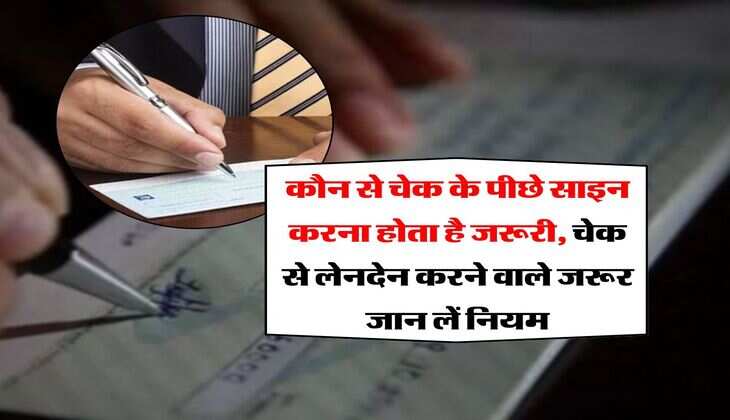 कौन से चेक के पीछे साइन
करना होता है जरूरी, चेक
से लेनदेन करने वाले जरूर
जान लें नियम